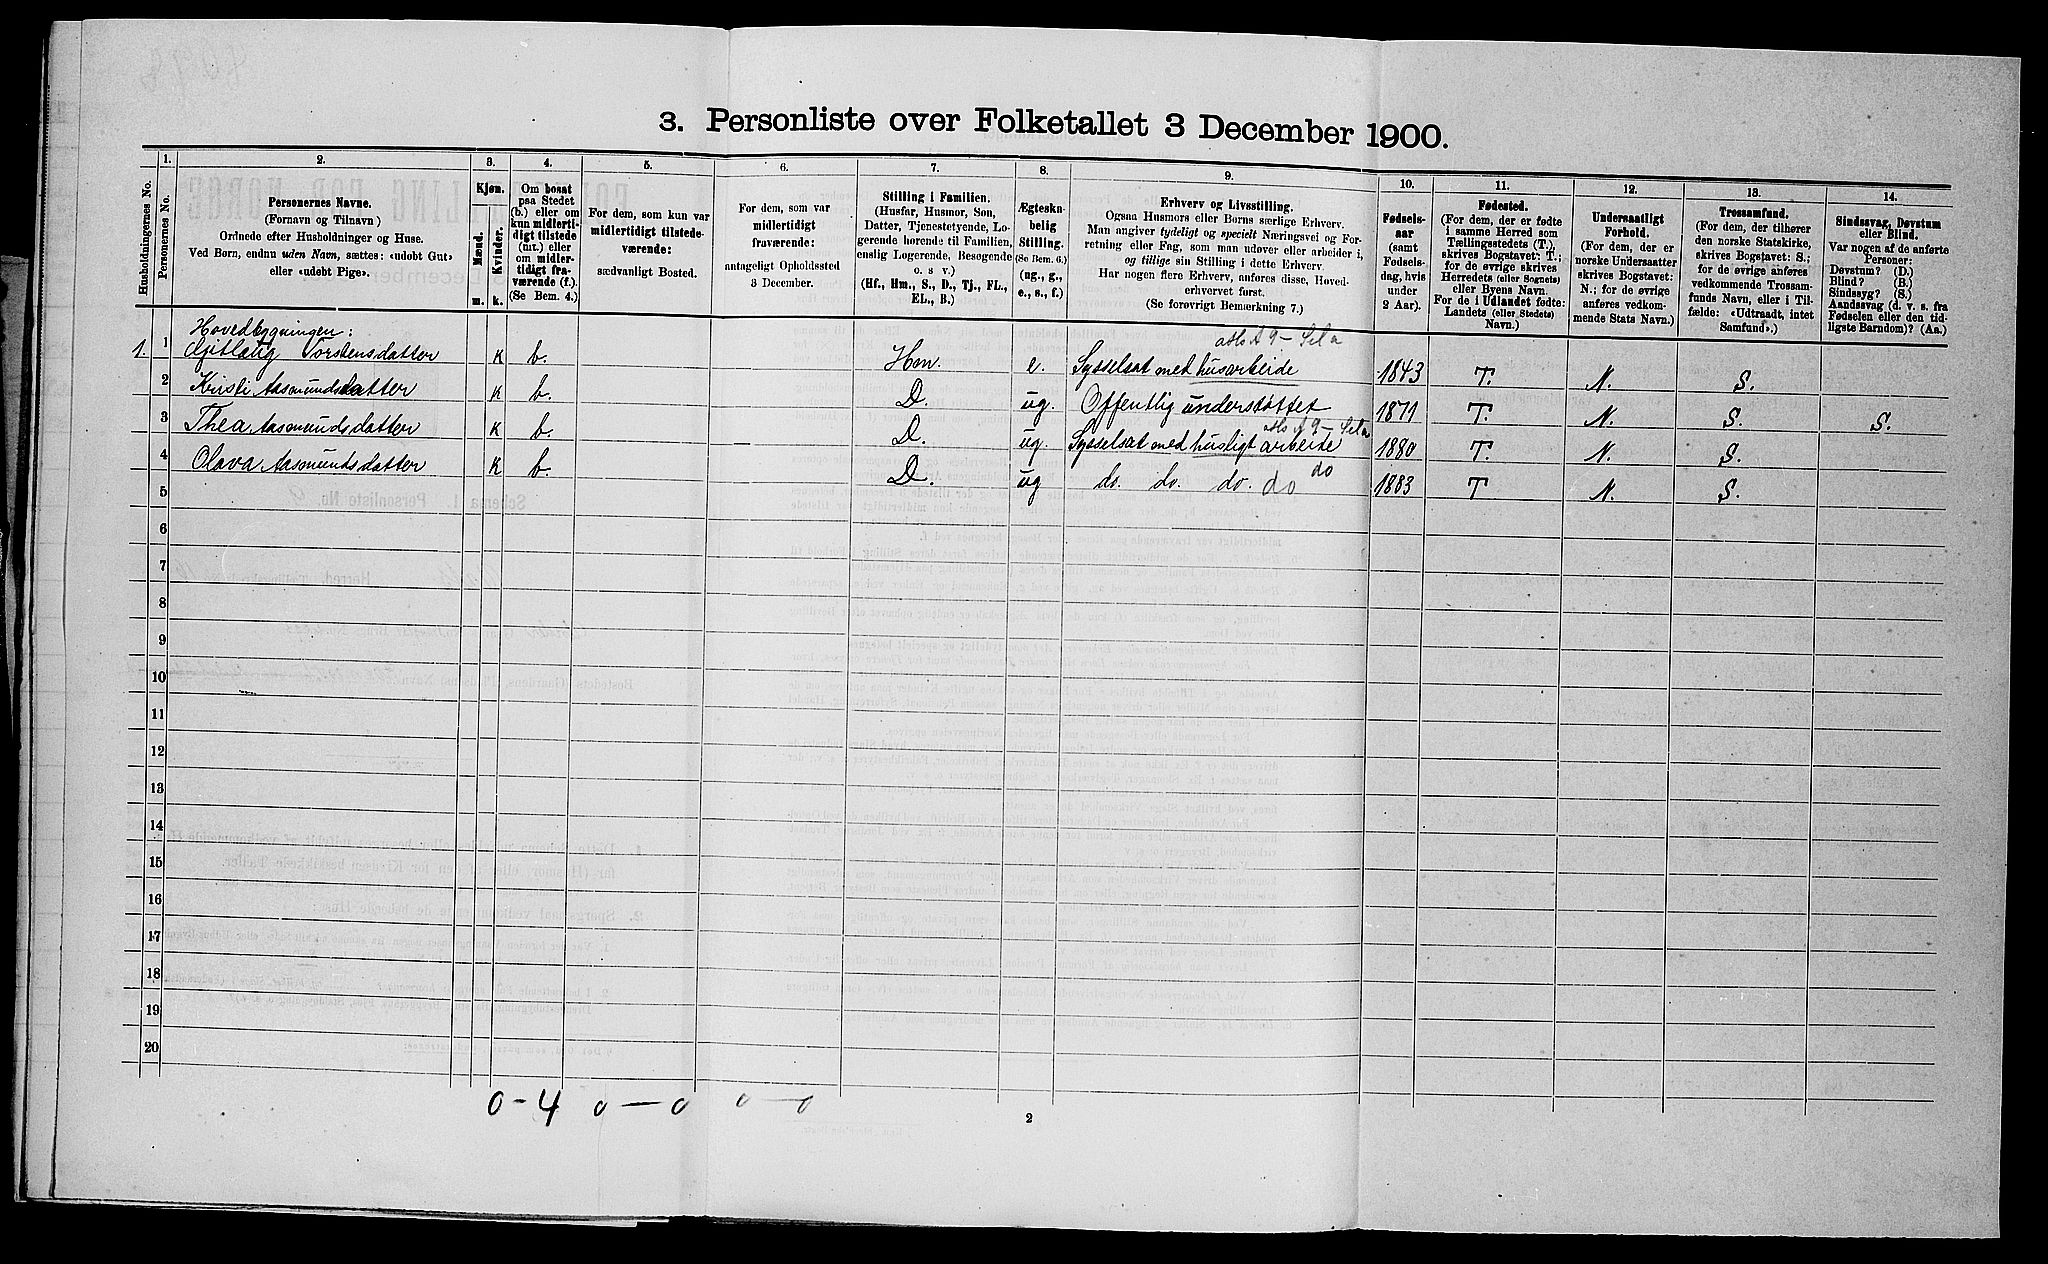 3. Personliste over Folketallet 3 December 1900.
Husholdningernes No.
1.
Personernes No.
2.
Personernes Navne.
(Fornavn og Tilnavn)
Ordnede efter Husholdninger og Huse.
Ved Børn, endnu uden Navn, sættes: «udøbt Gut»
eller «udøbt Pige».
3.
Kjøn.
Mænd.
Kvinder.
m.
k.
4.
Om bosat
paa Stedet
(b.) eller om
kun midlerti-
digt tilstede
(mt.) eller
om midler-
tidigt fra-
værende (f.).
(Se Bem. 4.)
5.
For dem, som kun var
midlertidigt tilstede-
værende:
sædvanligt Bosted.
6.
For dem, som var
midlertidigt
fraværende:
antageligt Opholdssted
3 December.
7.
Stilling i Familien.
(Husfar, Husmor, Søn,
Datter, Tjenestetyende, Lo-
gerende hørende til Familien,
enslig Logerende, Besøgende
o. s v.)
(Hf., Hm., S., D., Tj., FL.,
EL., B.)
8.
Ægteskn-
belig
Stilling.
(Se Bem. 6.)
(ug., g.,
e., s., f.)
9.
Erhverv og Livsstilling.
Ogsaa Husmors eller Børns særlige Erhverv.
Man angiver tydeligt og specielt Næringsvei og For-
retning eller Fag, som man udøver eller arbeider i,
og tillige sin Stilling i dette Erhverv.
Har nogen flere Erhverv, anføres disse, Hoved-
erhvervet først.
(Se forøvrigt Bemærkning 7.)
10.
Fødsels-
aar
(samt
Fødsels-
dag, hvis
under
2 Aar).
11.
Fødested.
(For dem, der er fødte
i samme Herred som
Tællingsstedets (T.),
skrives Bogstavet: T.;
for de øvrige skrives
Herredets (eller Sognets)
eller Byens Navn.
For de i Udlandet fødte:
Landets (eller Stedets)
Navn.)
12.
Undersaatligt
Forhold.
(For dem, der er
norske Undersaatter
skrives Bogstavet:
N.; for de øvrige
anføres vedkom-
mende Stats Navn.)
13.
Trossamfund.
(For dem, der tilhører
den norske Statskirke,
skrives Bogstavet: S.;
for de øvrige anføres
vedkommende Trossam-
funds Navn, eller i Til-
fælde: «Udtraadt, intet
Samfund».)
14.
Sindssvag, Døvstum
eller Blind.
Var nogen af de anførte
Personer:
Døvstum? (D.)
Blind? (B.)
Sindssyg? (S.)
Aandssvag (d. v. s. fra
Fødselen eller den tid-
ligste Barndom)? (Aa.)
Hovedbygningen:
1. 1 Gjitlaug Torstensdatter K b. Hm. e. Sysselsat med husarbeide 1843 T. N. S.
2 Kristi Aasmundsdatter K b. D. ug. Offentlig understøttet 1871 T. N. S. S.
3 Thea Aasmundsdatter K b. D. ug. Sysselsat med husligt arbeide 1880 T. N. S.
4 Olava Aasmundsdatter K b. D. ug do. do. do. do do 1883 T N. S.
5
6
7
8
9
10
11
12
13
14
15
16
17
18
19
20
0 - 4 0 - 0 0 - 0
2